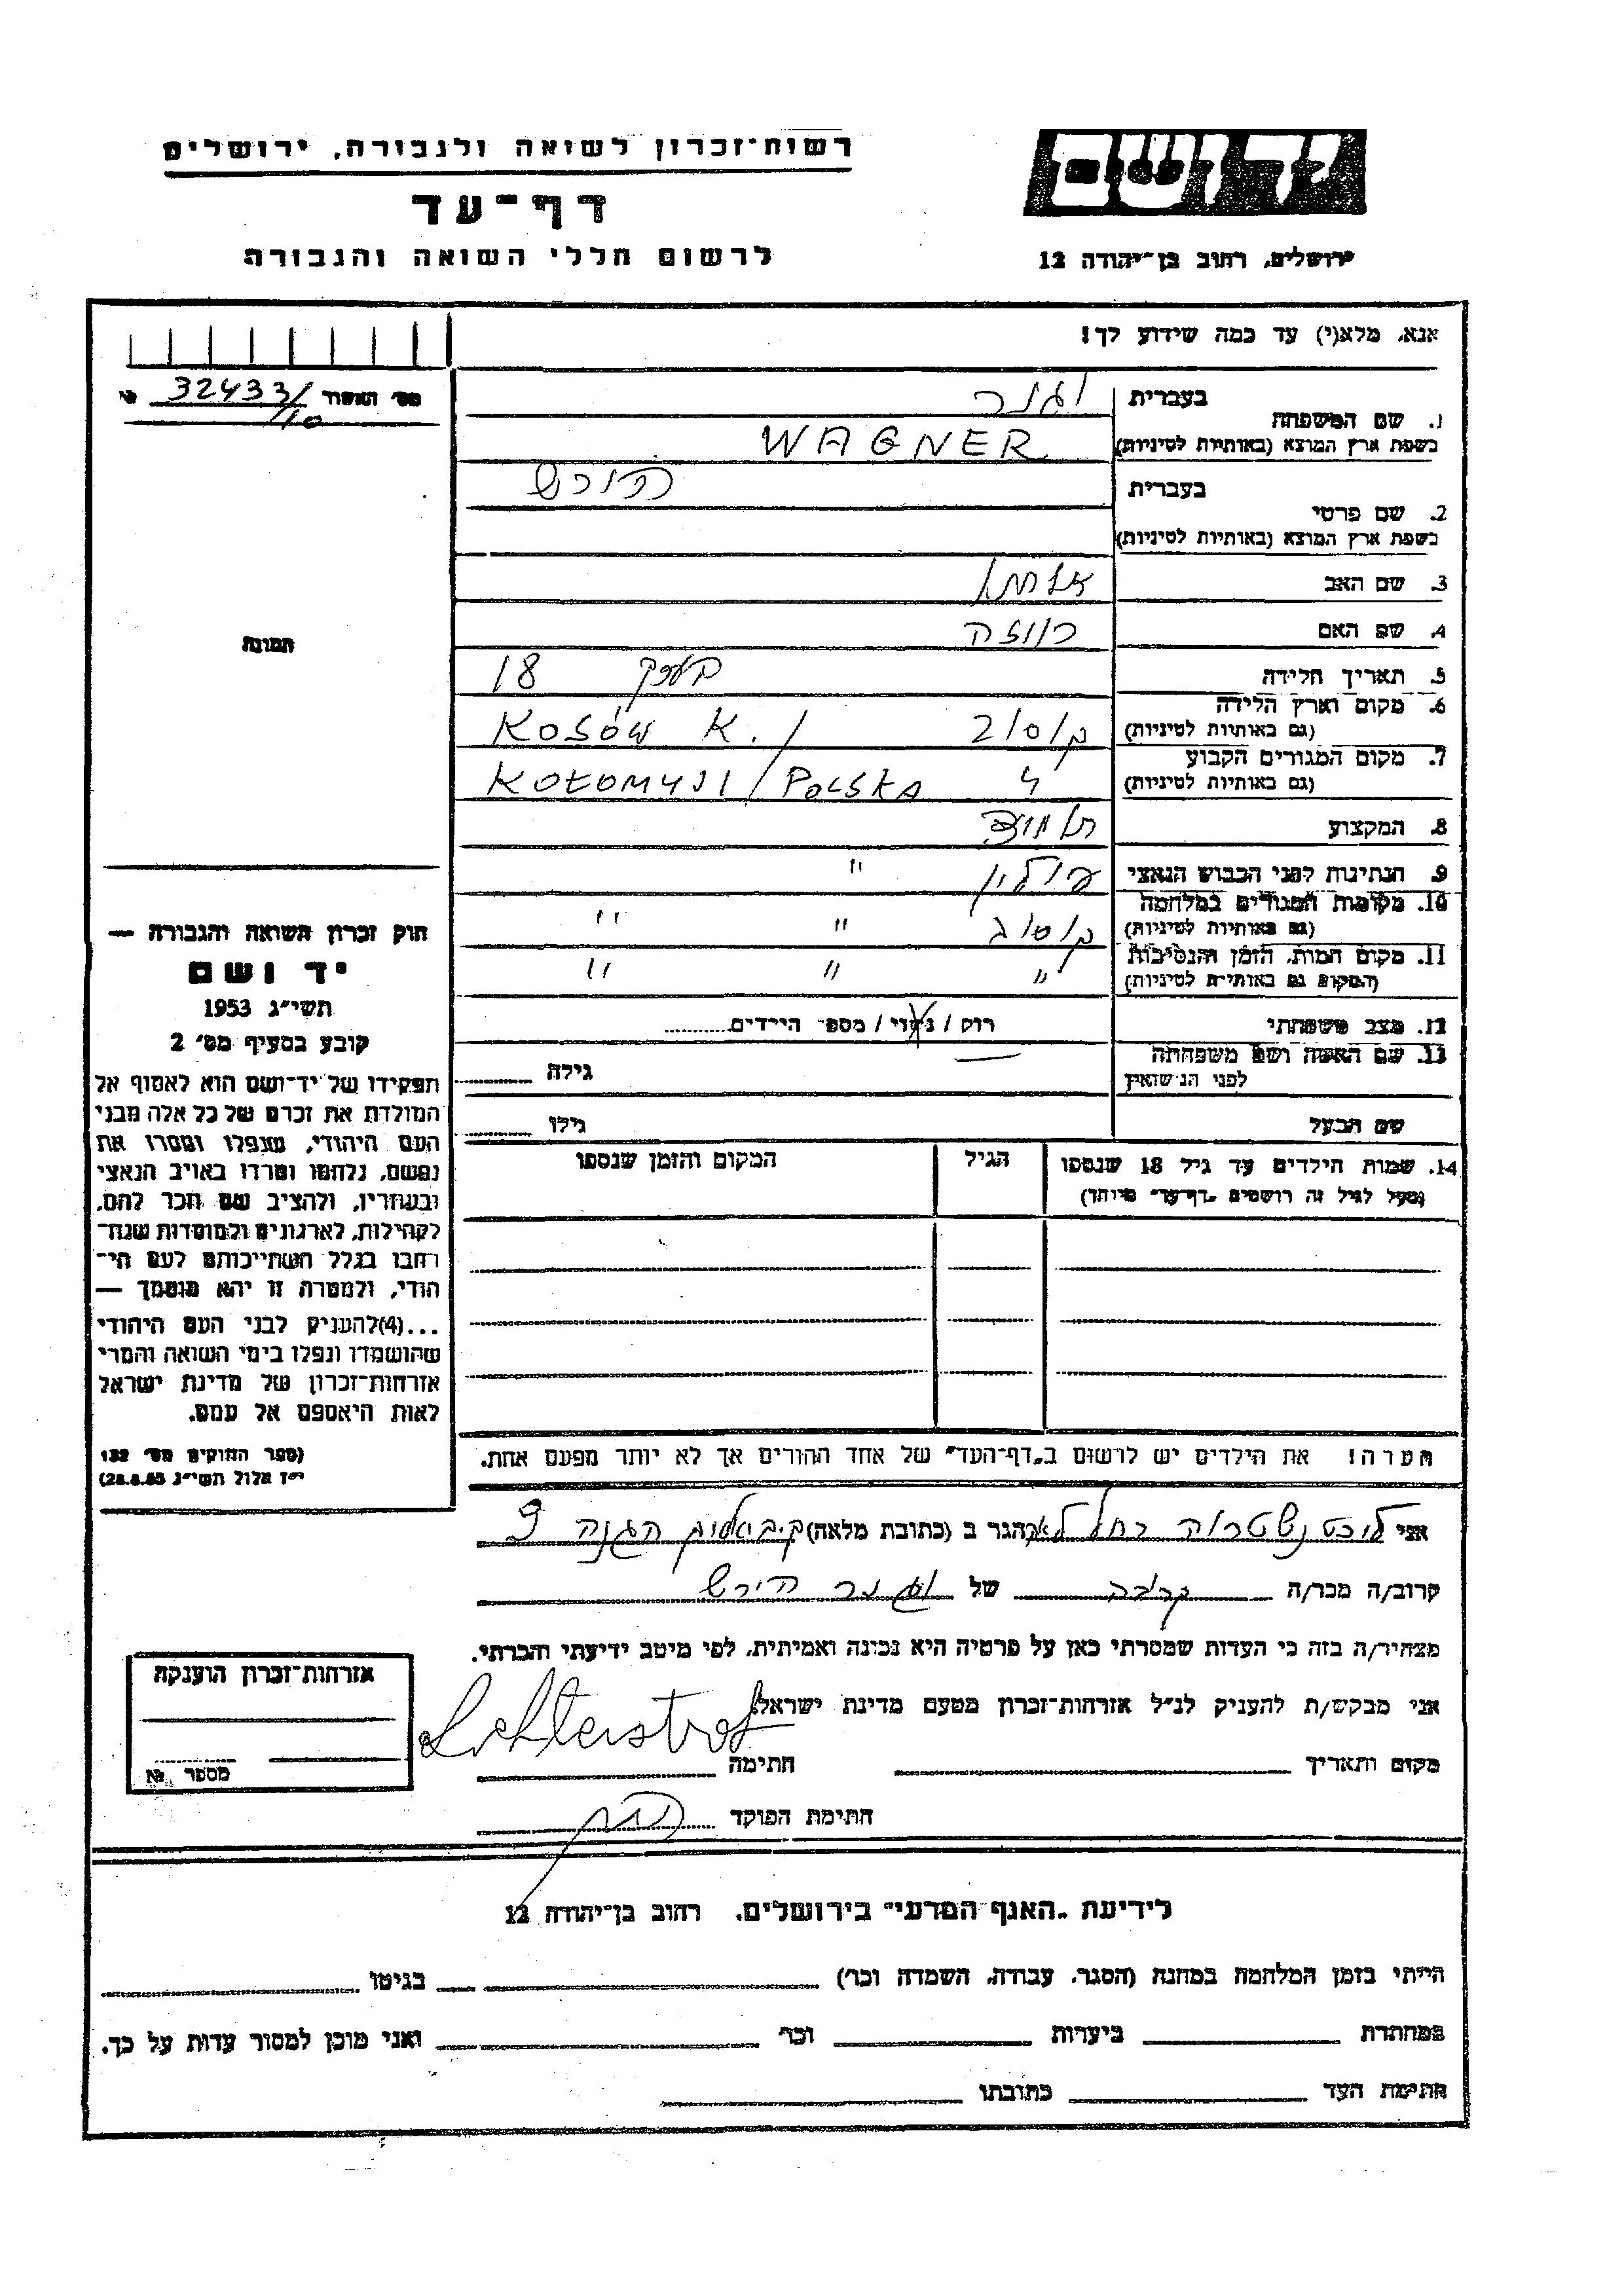 רשות־זכרון לשואה ולגבורה, ירושלים
יד ושם
דף־עד
לרשום חללי השואה והגבורה
ירושלים, רחוב בן־יהודה 12
אנא, מלא(י) עד כמה שידוע לך!
מס׳ האשור № 32433/10
1. שם המשפחה
בעברית וגנר
בשפת ארץ המוצא (באותיות לטיניות) WAGNER
2. שם פרטי
בעברית הירש
בשפת ארץ המוצא (באותיות לטיניות)
3. שם האב
4. שם האם רוזה
5. תאריך הלידה 18
6. מקום וארץ הלידה
(גם באותיות לטיניות) KOSÓW K. /
7. מקום המגורים הקבוע
(גם באותיות לטיניות) KOŁOMYJI / POLSKA
8. המקצוע
9. הנתינות לפני הכבוש הנאצי פולין "
10. מקומות המגורים במלחמה
(גם באותיות לטיניות) " "
11. מקום המות, הזמן והנסיבות
(המקום גם באותיות לטיניות) " " "
12. מצב משפחתי רוק / נשוי / מספר הילדים
13. שם האשה ושם משפחתה
לפני הנישואין גילה
שם הבעל גילו
14. שמות הילדים עד גיל 18 שנספו הגיל המקום והזמן שנספו
(מעל לגיל זה רושמים „דף־עד״ מיוחד)
הערה! את הילדים יש לרשום ב„דף־העד״ של אחד ההורים אך לא יותר מפעם אחת.
תמונה
חוק זכרון השואה והגבורה —
יד ושם
תשי״ג 1953
קובע בסעיף מס׳ 2
תפקידו של יד־ושם הוא לאסוף אל
המולדת את זכרם של כל אלה מבני
העם היהודי, שנפלו ומסרו את
נפשם, נלחמו ומרדו באויב הנאצי
ובעוזריו, ולהציב שם וזכר להם,
לקהילות, לארגונים ולמוסדות שנח־
רבו בגלל השתייכותם לעם הי־
הודי, ולמטרה זו יהא מוסמך —
...(4)להעניק לבני העם היהודי
שהושמדו ונפלו בימי השואה והמרי
אזרחות־זכרון של מדינת ישראל
לאות היאספם אל עמם.
(ספר החוקים מס׳ 132
י״ז אלול תשי״ג 28.8.53)
אני רחל הגר ב (כתובת מלאה) ההגנה 9
קרוב/ה מכר/ה קרובה של וגנר הירש
מצהיר/ה בזה כי העדות שמסרתי כאן על פרטיה היא נכונה ואמיתית, לפי מיטב ידיעתי והכרתי.
אני מבקש/ת להעניק לנ״ל אזרחות־זכרון מטעם מדינת ישראל
מקום ותאריך חתימה
חתימת הפוקד
אזרחות־זכרון הוענקה
מספר №
לידיעת „האגף המדעי״ בירושלים, רחוב בן־יהודה 12
הייתי בזמן המלחמה במחנה (הסגר, עבודה, השמדה וכר׳) בגיטו
במחתרת ביערות וכר׳ ואני מוכן למסור עדות על כך.
חתימת העד כתובתו